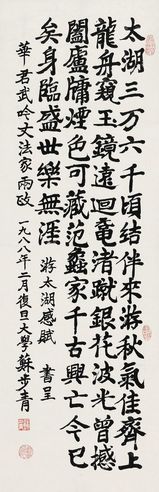 太湖三万六千頃結伴来游秋氣佳齊上
龍舟窺玉鏡遠迴黿渚蹴銀花波光曾撼
闔廬牖煙色可藏范蠡家千古興亡今已
矣身臨盛世樂無涯 游太湖感賦 書呈
華君武吟丈法家雨政 一九八八年二月復旦大學蘇步青